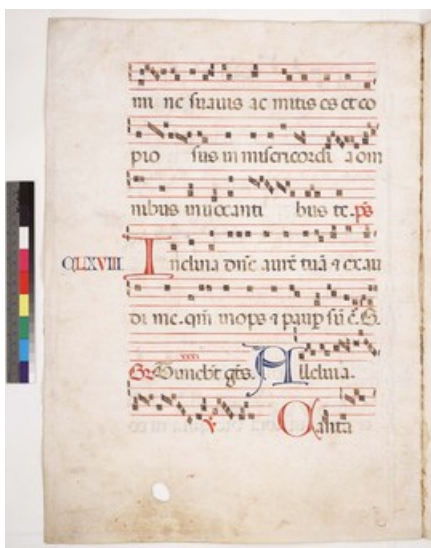 mi ne suavis ac mitis es et co
pio sus in misericordi a om
nibus invocanti bus te. ps
CLXVIII. Inclina dne aurē tuā ⁊ exau
di me. qm inops ⁊ paup sū
Gr Timebt gtes. Alleluia.
Canta